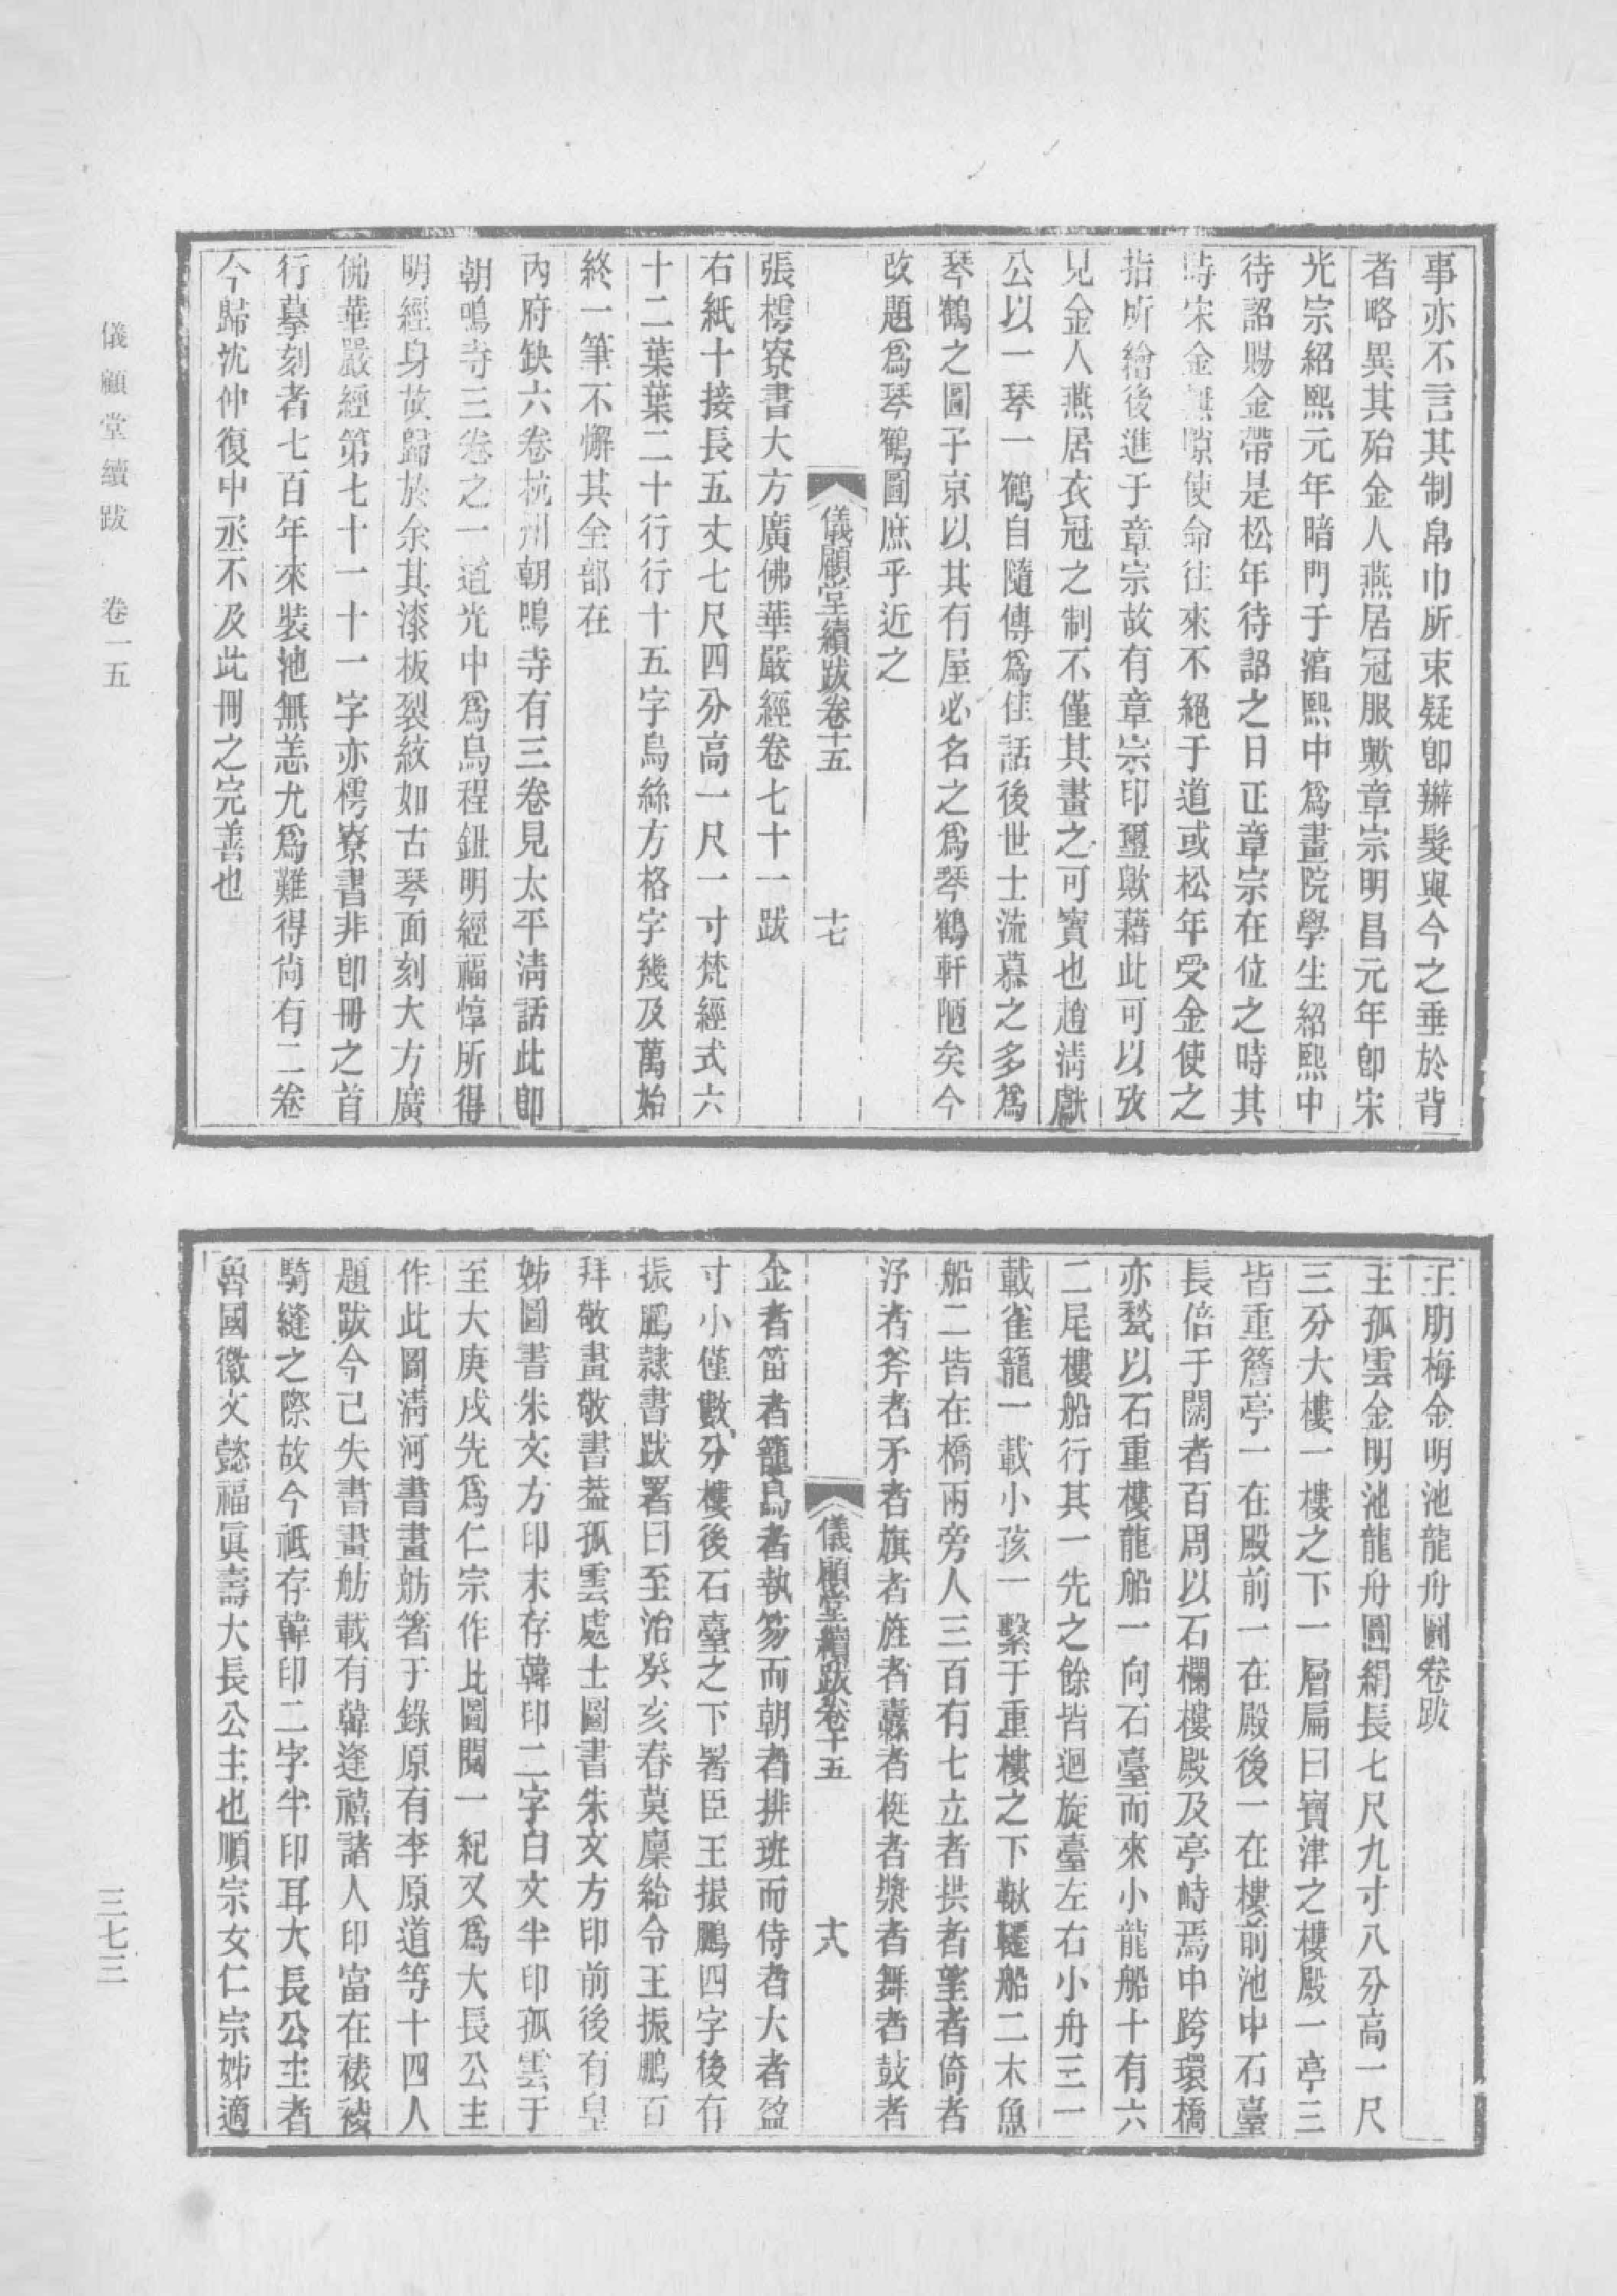 事亦不言其制帛巾所束疑卽辮髮與今之垂於背
者略異其殆金人燕居冠服歟章宗明昌元年卽宋
光宗紹熙元年暗門于湻熙中爲畫院學生紹熙中
待詔賜金帶是松年待詔之日正章宗在位之時其
時宋金無隙使命往來不絕于道或松年受金使之
指所繪後進于章宗故有章宗印璽歟藉此可以攷
見金人燕居衣冠之制不僅其畫之可寶也趙淸獻
公以一琴一鶴自隨傳爲佳話後世士流慕之多爲
琴鶴之圖子京以其有屋必名之爲琴鶴軒陋矣今
改題爲琴鶴圖庶乎近之
儀顧堂續跋卷十五 十七
張樗寮書大方廣佛華嚴經卷七十一跋
右紙十接長五丈七尺四分高一尺一寸梵經式六
十二葉葉二十行行十五字烏絲方格字幾及萬始
終一筆不懈其全部在
內府缺六卷杭州朝鳴寺有三卷見太平淸話此卽
朝鳴寺三卷之一道光中爲烏程鈕明經福惇所得
明經身故歸於余其漆板裂紋如古琴面刻大方廣
佛華嚴經第七十一十一字亦樗寮書非卽冊之首
行摹刻者七百年來裝池無恙尤爲難得尙有二卷
今歸沈仲復中丞不及此冊之完善也
王朋梅金明池龍舟圖卷跋
王孤雲金明池龍舟圖絹長七尺九寸八分高一尺
三分大樓一樓之下一層扁曰寶津之樓殿一亭三
皆重簷亭一在殿前一在殿後一在樓前池中石臺
長倍于闊者百周以石欄樓殿及亭峙焉中跨環橋
亦甃以石重樓龍船一向石臺而來小龍船十有六
二尾樓船行其一先之餘皆迴旋臺左右小舟三一
載雀籠一載小孩一繫于重樓之下鞦韆船二木魚
船二皆在橋兩旁人三百有七立者拱者望者倚者
泘者斧者矛者旗者旌者纛者梃者槳者舞者鼓者
儀顧堂續跋卷十五 十八
金者笛者籠鳥者執笏而朝者排班而侍者大者盈
寸小僅數分樓後石臺之下署臣王振鵬四字後有
振鵬隷書跋署曰至治癸亥春莫廩給令王振鵬百
拜敬畫敬書葢孤雲處士圖書朱文方印前後有皇
姊圖書朱文方印末存韓印二字白文半印孤雲于
至大庚戌先爲仁宗作此圖閱一紀又爲大長公主
作此圖淸河書畫舫箸于錄原有李原道等十四人
題跋今已失書畫舫載有韓逢禧諸人印當在裱綾
騎縫之際故今祗存韓印二字半印耳大長公主者
魯國徽文懿福眞壽大長公主也順宗女仁宗姊適
儀顧堂續跋 卷一五
三七三